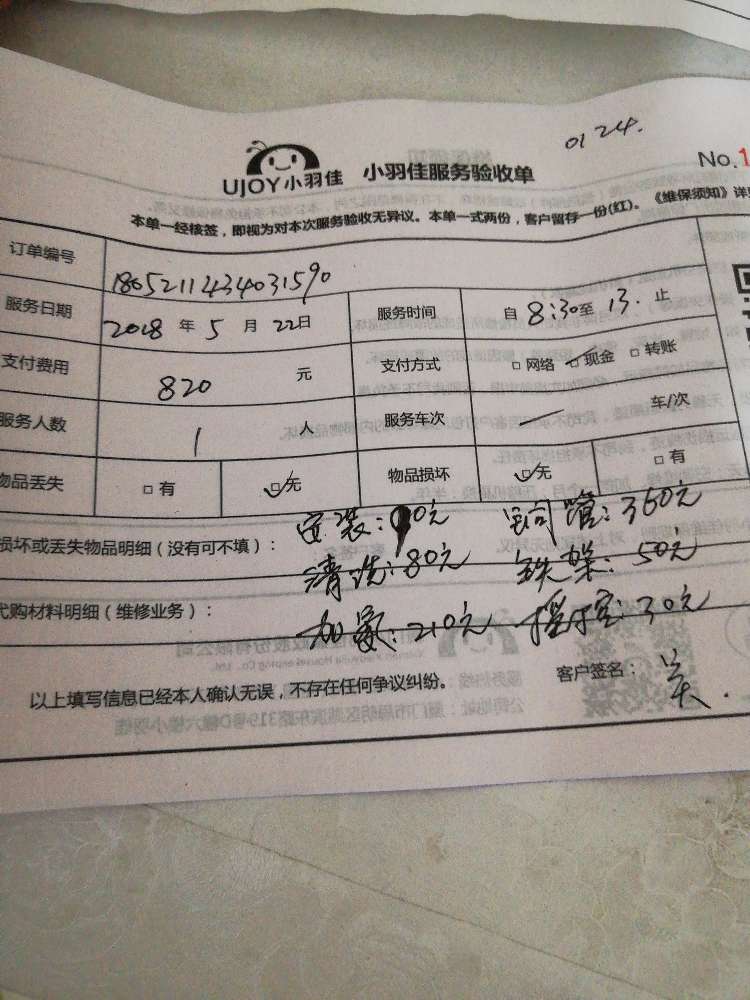 0124.
UJOY小羽佳 小羽佳服务验收单 No.1
本单一经核签，即视为对本次服务验收无异议。本单一式两份，客户留存一份(红)。《维保须知》详
订单编号 1805211434031590
服务日期 2018 年 5 月 22日 服务时间 自 8:30至 13. 止
支付费用 820 元 支付方式 □ 网络 ☑ 现金 □ 转账
服务人数 1 人 服务车次 一 车/次
物品丢失 □ 有 ☑ 无 物品损坏 ☑ 无 □ 有
损坏或丢失物品明细（没有可不填）：安装：90元 铜管：360元
清洗：80元 铁架：50元
代购材料明细（维修业务）：加氟：210元 摇控：30元
以上填写信息已经本人确认无误，不存在任何争议纠纷。 客户签名：